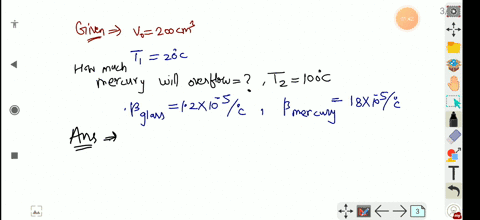 Given ⇒ V₀ = 200 cm³
T₁ = 20°C
How much mercury will overflow = ? , T₂ = 100°C
β glass = 1.2 × 10⁻⁵/°C , β mercury = 18 × 10⁻⁵/°C
Ans ⇒
T
3